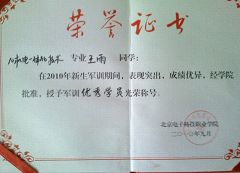 荣誉证书
专业王雨 同学:
在2010年新生军训期间,表现突出,成绩优异,经学院
批准,授予军训优秀学员光荣称号。
北京电子科技职业学院
二〇一〇年九月